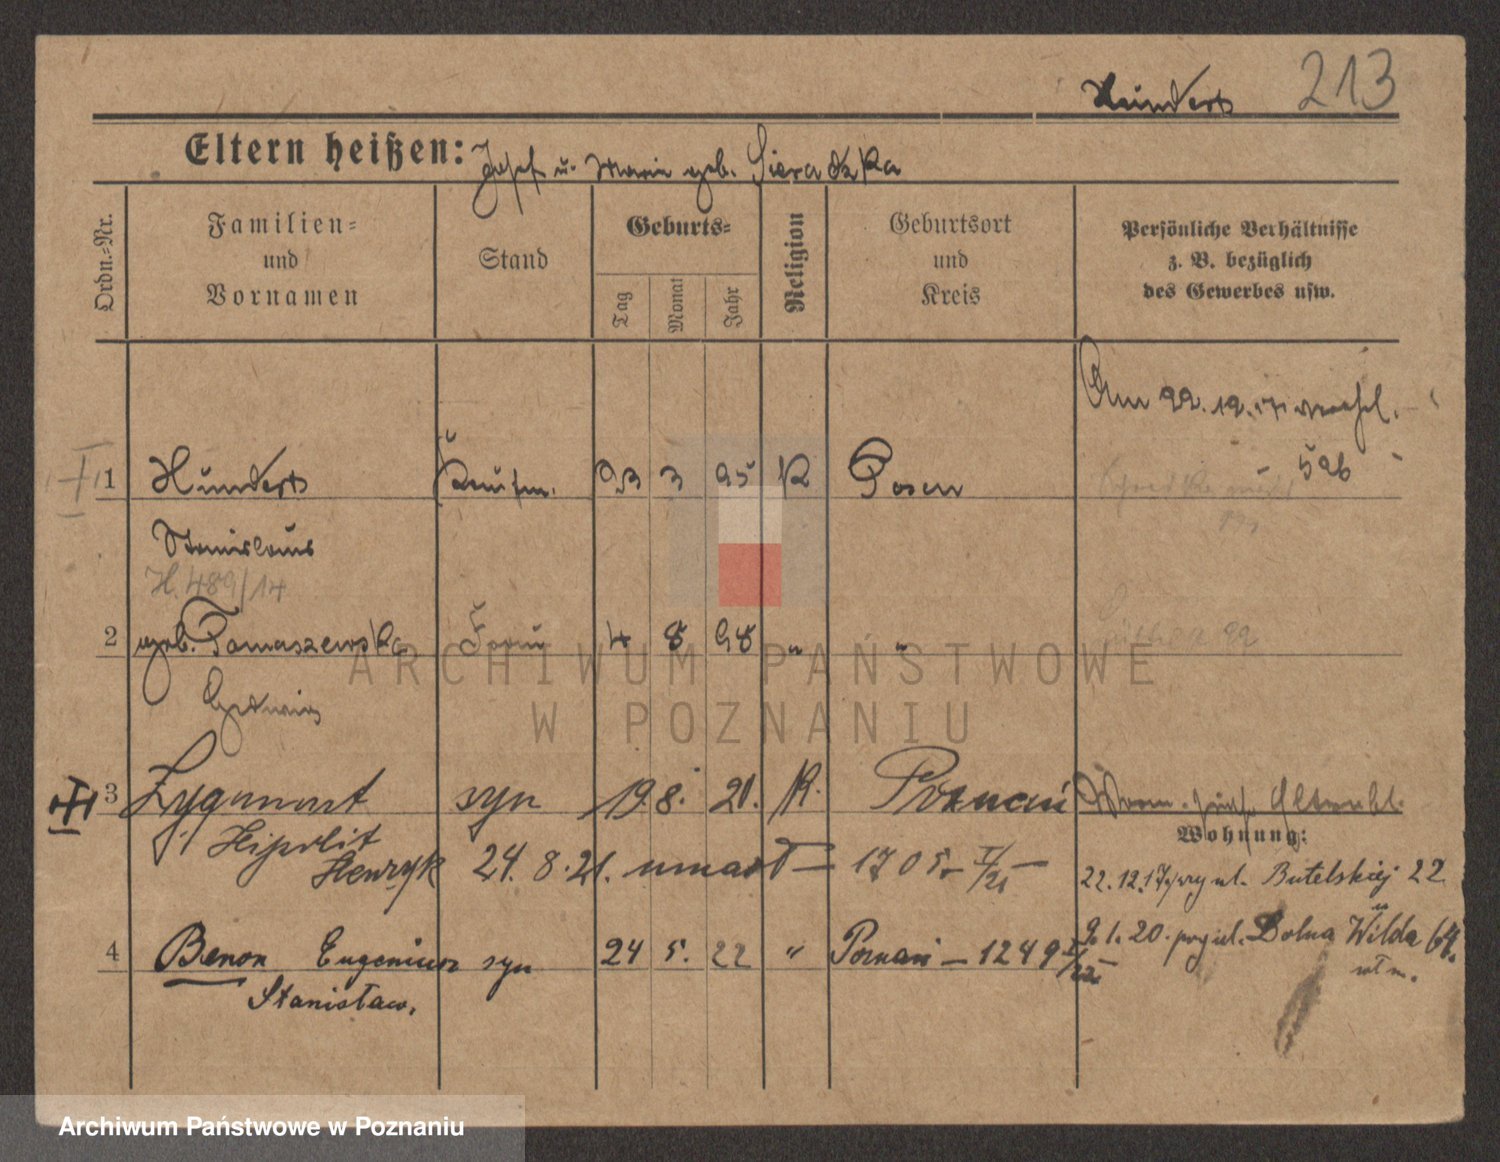 Hundert 213
Eltern heißen: Josef u. Marie geb. Sieradzka
Ordn.-Nr.
Familien-
und
Vornamen
Stand
Geburts-
Tag
Monat
Jahr
Religion
Geburtsort
und
Kreis
Persönliche Verhältnisse
z. B. bezüglich
des Gewerbes usw.
Am 22.12.17
1 Hundert Kaufm. 23 3 95 K Posen 526
Stanislaus
H. 489/14
2 geb. Tomaszewska Frau 4 8 98 " "
Hedwig
3 Zygmunt syn 19. 8. 21. K. Poznań
Hipolit
Henryk 24. 8. 21. umarł 1705
Wohnung:
22.12.17 przy ul. Butelskiej 22
9. 1. 20. przy ul. Dolna Wilda 64.
4 Benon Eugeniusz syn 24 5. 22 " Poznań - 1249
Stanisław.
ARCHIWUM PAŃSTWOWE
W POZNANIU
Archiwum Państwowe w Poznaniu